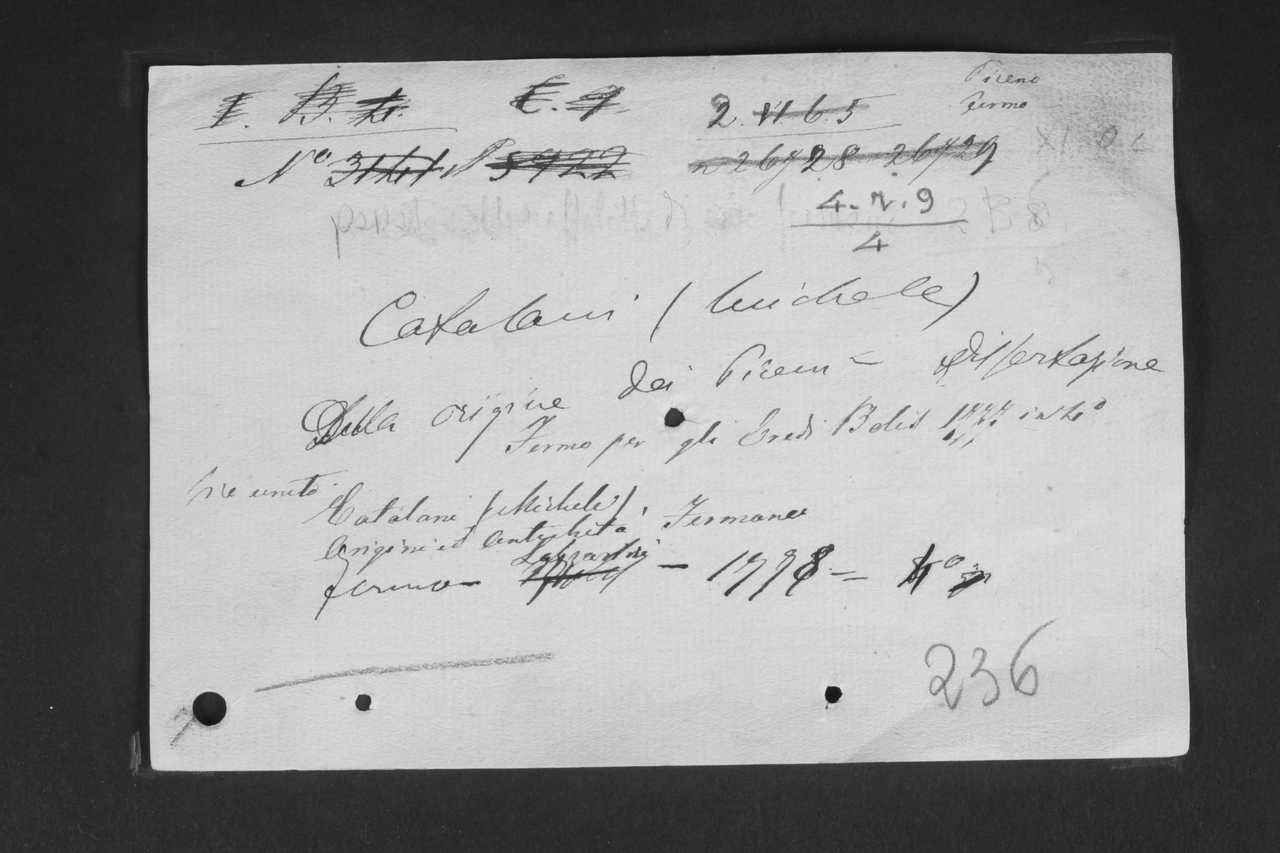 I. B. 4. E. 9. 2. VI. 6. 5 Piceno
Fermo
N° 3141 5922 n 26728 26729
4-r.9
4
Catalani (Michele)
Della origine dei Piceni = Dissertazione
Fermo per gli Eredi Bolis 1777 in 4°
Vie unito
Catalani (Michele)
Origini ed Antichità Fermane
Fermo - Lazzarini - 1778 = 4°
236